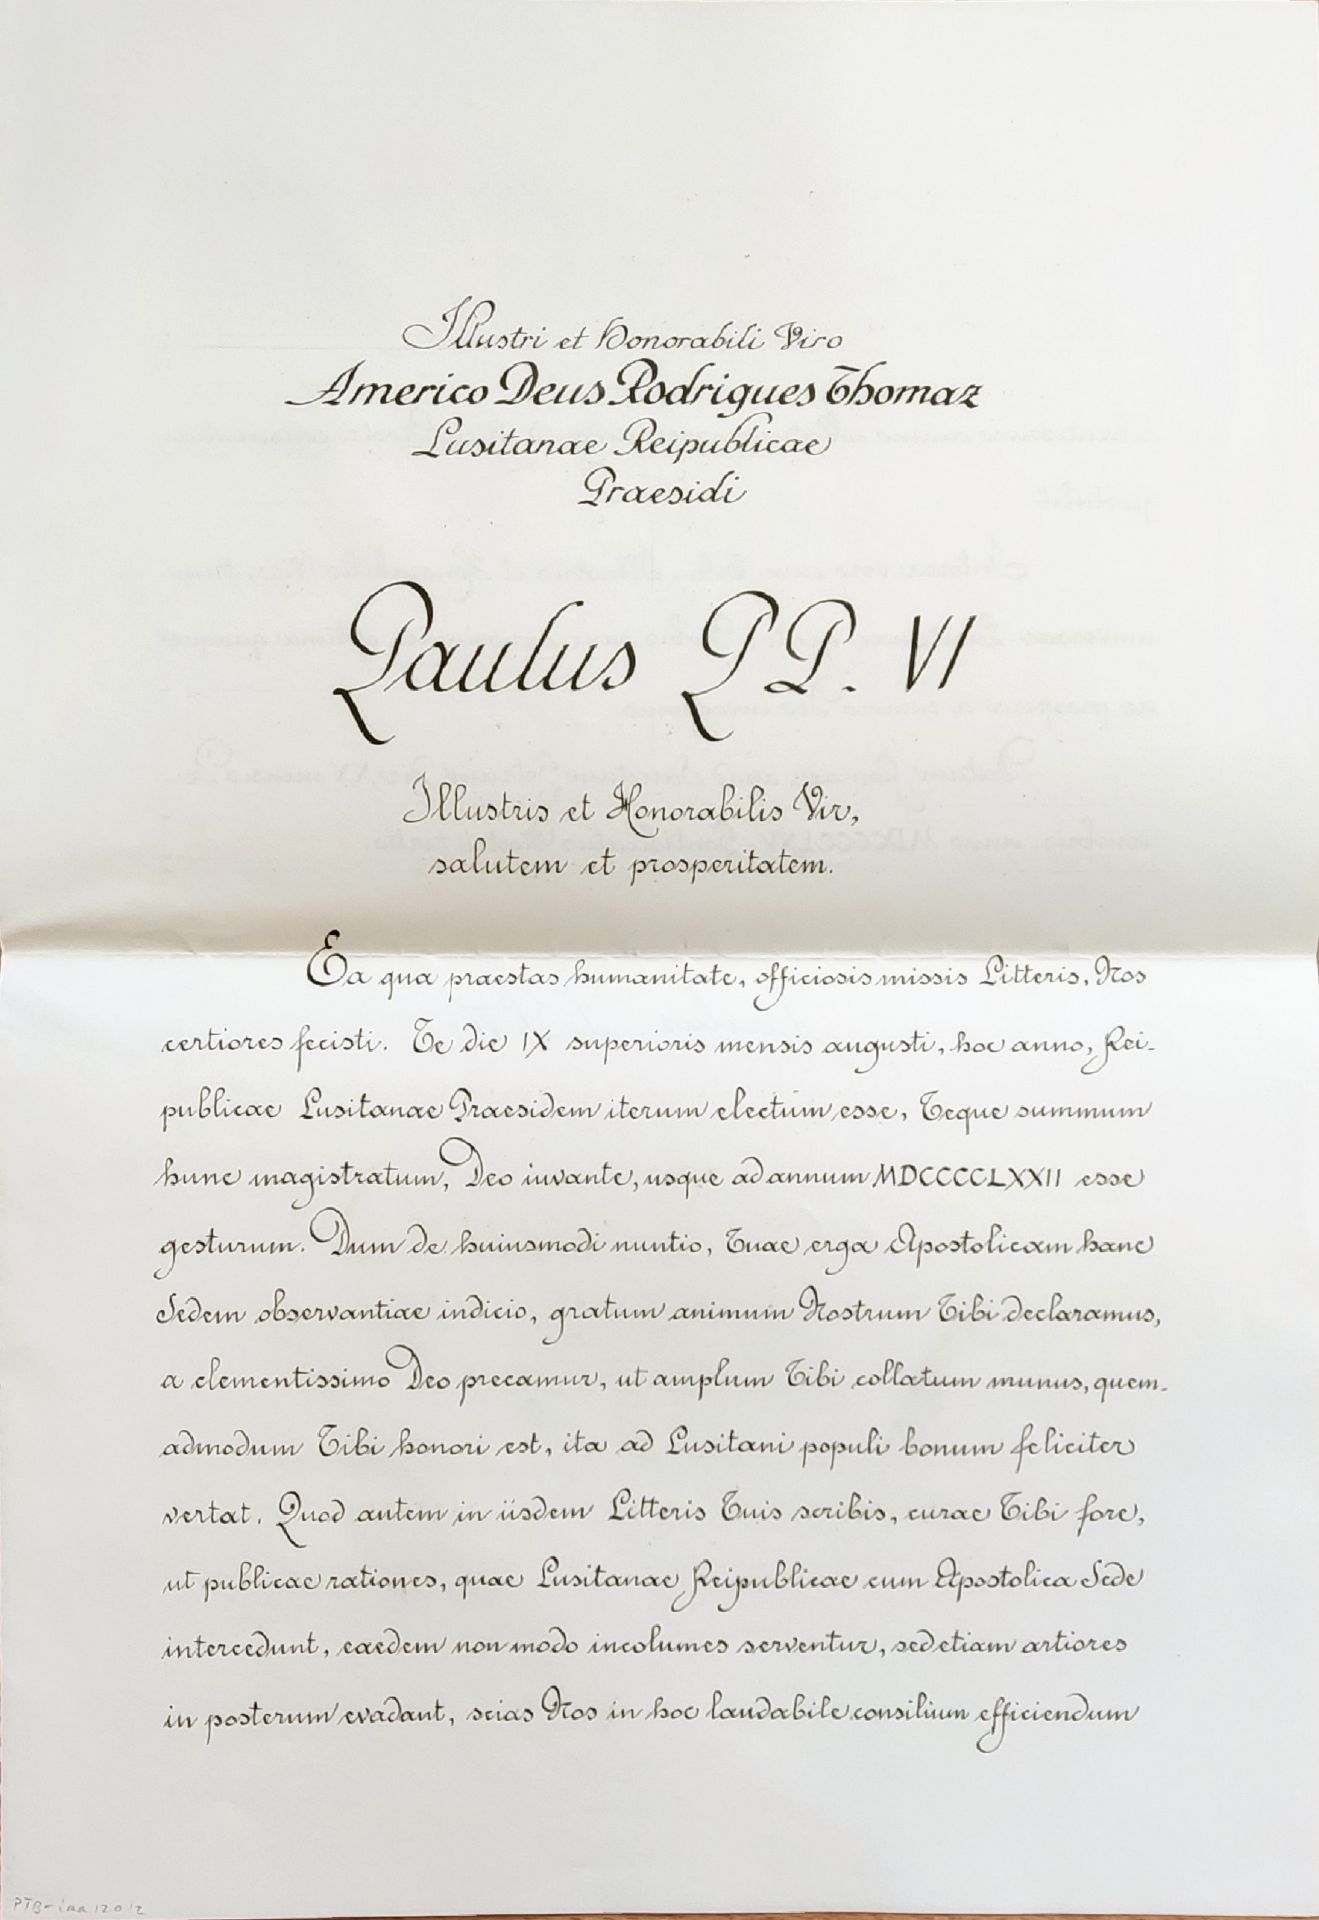 Illustri et Honorabili Viro
Americo Deus Rodrigues Thomaz
Lusitanae Reipublicae
Praesidi
Paulus PP. VI
Illustris et Honorabilis Vir,
salutem et prosperitatem.
Ea qua praestas humanitate, officiosis missis Litteris, Nos
certiores fecisti. Te die IX superioris mensis augusti, hoc anno, Rei-
publicae Lusitanae Praesidem iterum electum esse, Teque summum
hunc magistratum, Deo iuvante, usque ad annum MDCCCCLXXII esse
gesturum. Dum de huiusmodi nuntio, Tuae erga Apostolicam hanc
Sedem observantiae indicio, gratum animum Nostrum Tibi declaramus,
a clementissimo Deo precamur, ut amplum Tibi collatum munus, quem-
admodum Tibi honori est, ita ad Lusitani populi bonum feliciter
vertat. Quod autem in iisdem Litteris Tuis scribis, curae Tibi fore,
ut publicae rationes, quae Lusitanae Reipublicae cum Apostolica Sede
intercedunt, eaedem non modo incolumes serventur, sed etiam artiores
in posterum evadant, scias Nos in hoc laudabile consilium efficiendum